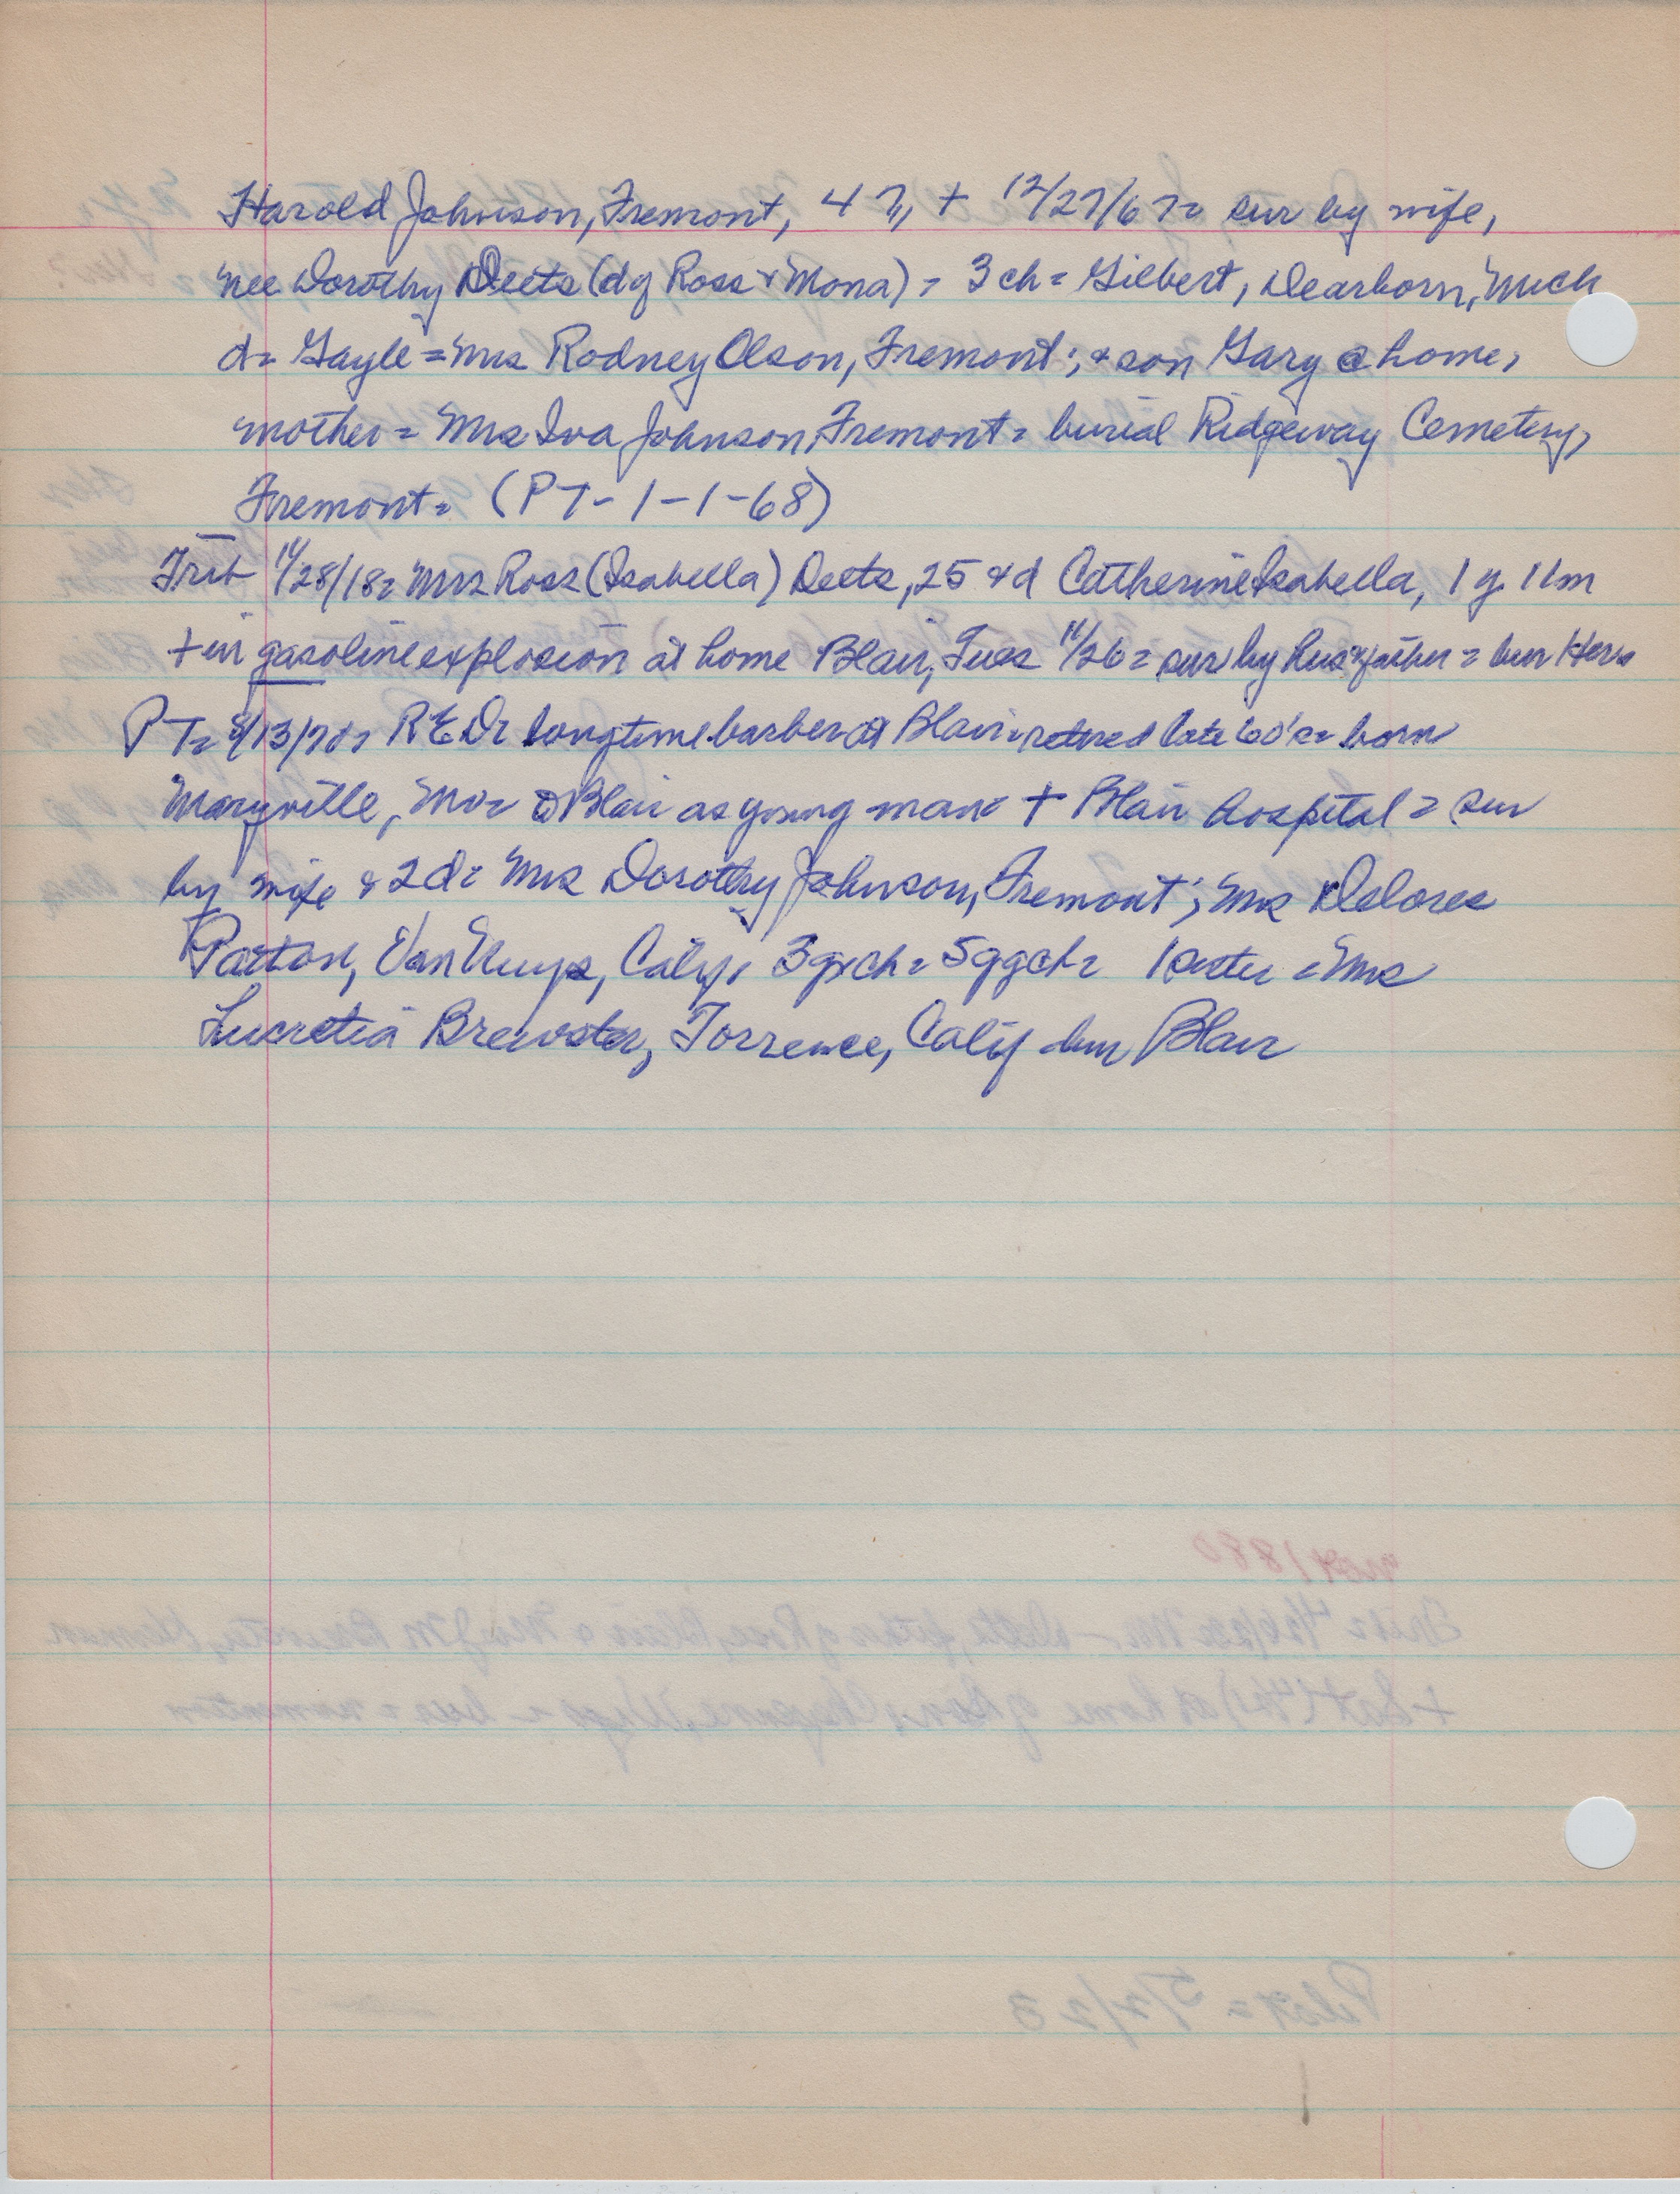 Harold Johnson, Fremont, 47, + 12/27/67= sur by wife,
nee Dorothy Deets (d of Ross & Mona) = 3 ch = Gilbert, Dearborn, Mich
d= Gayle = Mrs Rodney Olson, Fremont; & son Gary @ home,
mother = Mrs Iva Johnson, Fremont = burial Ridgeway Cemetery,
Fremont = (PT-1-1-68)
Trib 11/28/18= Mrs Ross (Isabella) Deets, 25 & d Catherine Isabella, 1 y 11m
+ in gasoline explosion at home Blair, Tues 11/26 = sur by hus & father = bur
PT= 8/13/ = R E D longtime barber at Blair = retired late 60's = born
Maryville, Mo = Blair as young man = + Blair hospital = sur
by wife & 2 d= Mrs Dorothy Johnson, Fremont; Mrs Delores
Patton, Van Nuys, Calif, 3 grch = 5 ggch = 1 sister = Mrs
Lucretia Brewster, Torrence, Calif bur Blair